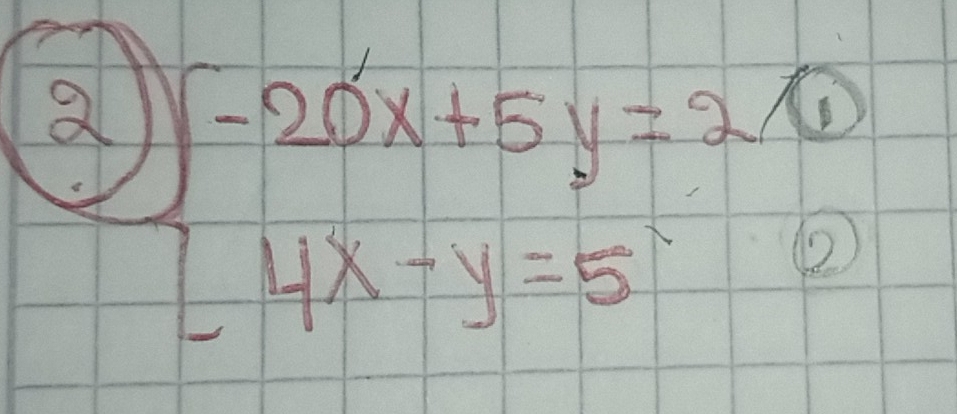 ② -20x+5y=2 ①
4x-y=5 ②